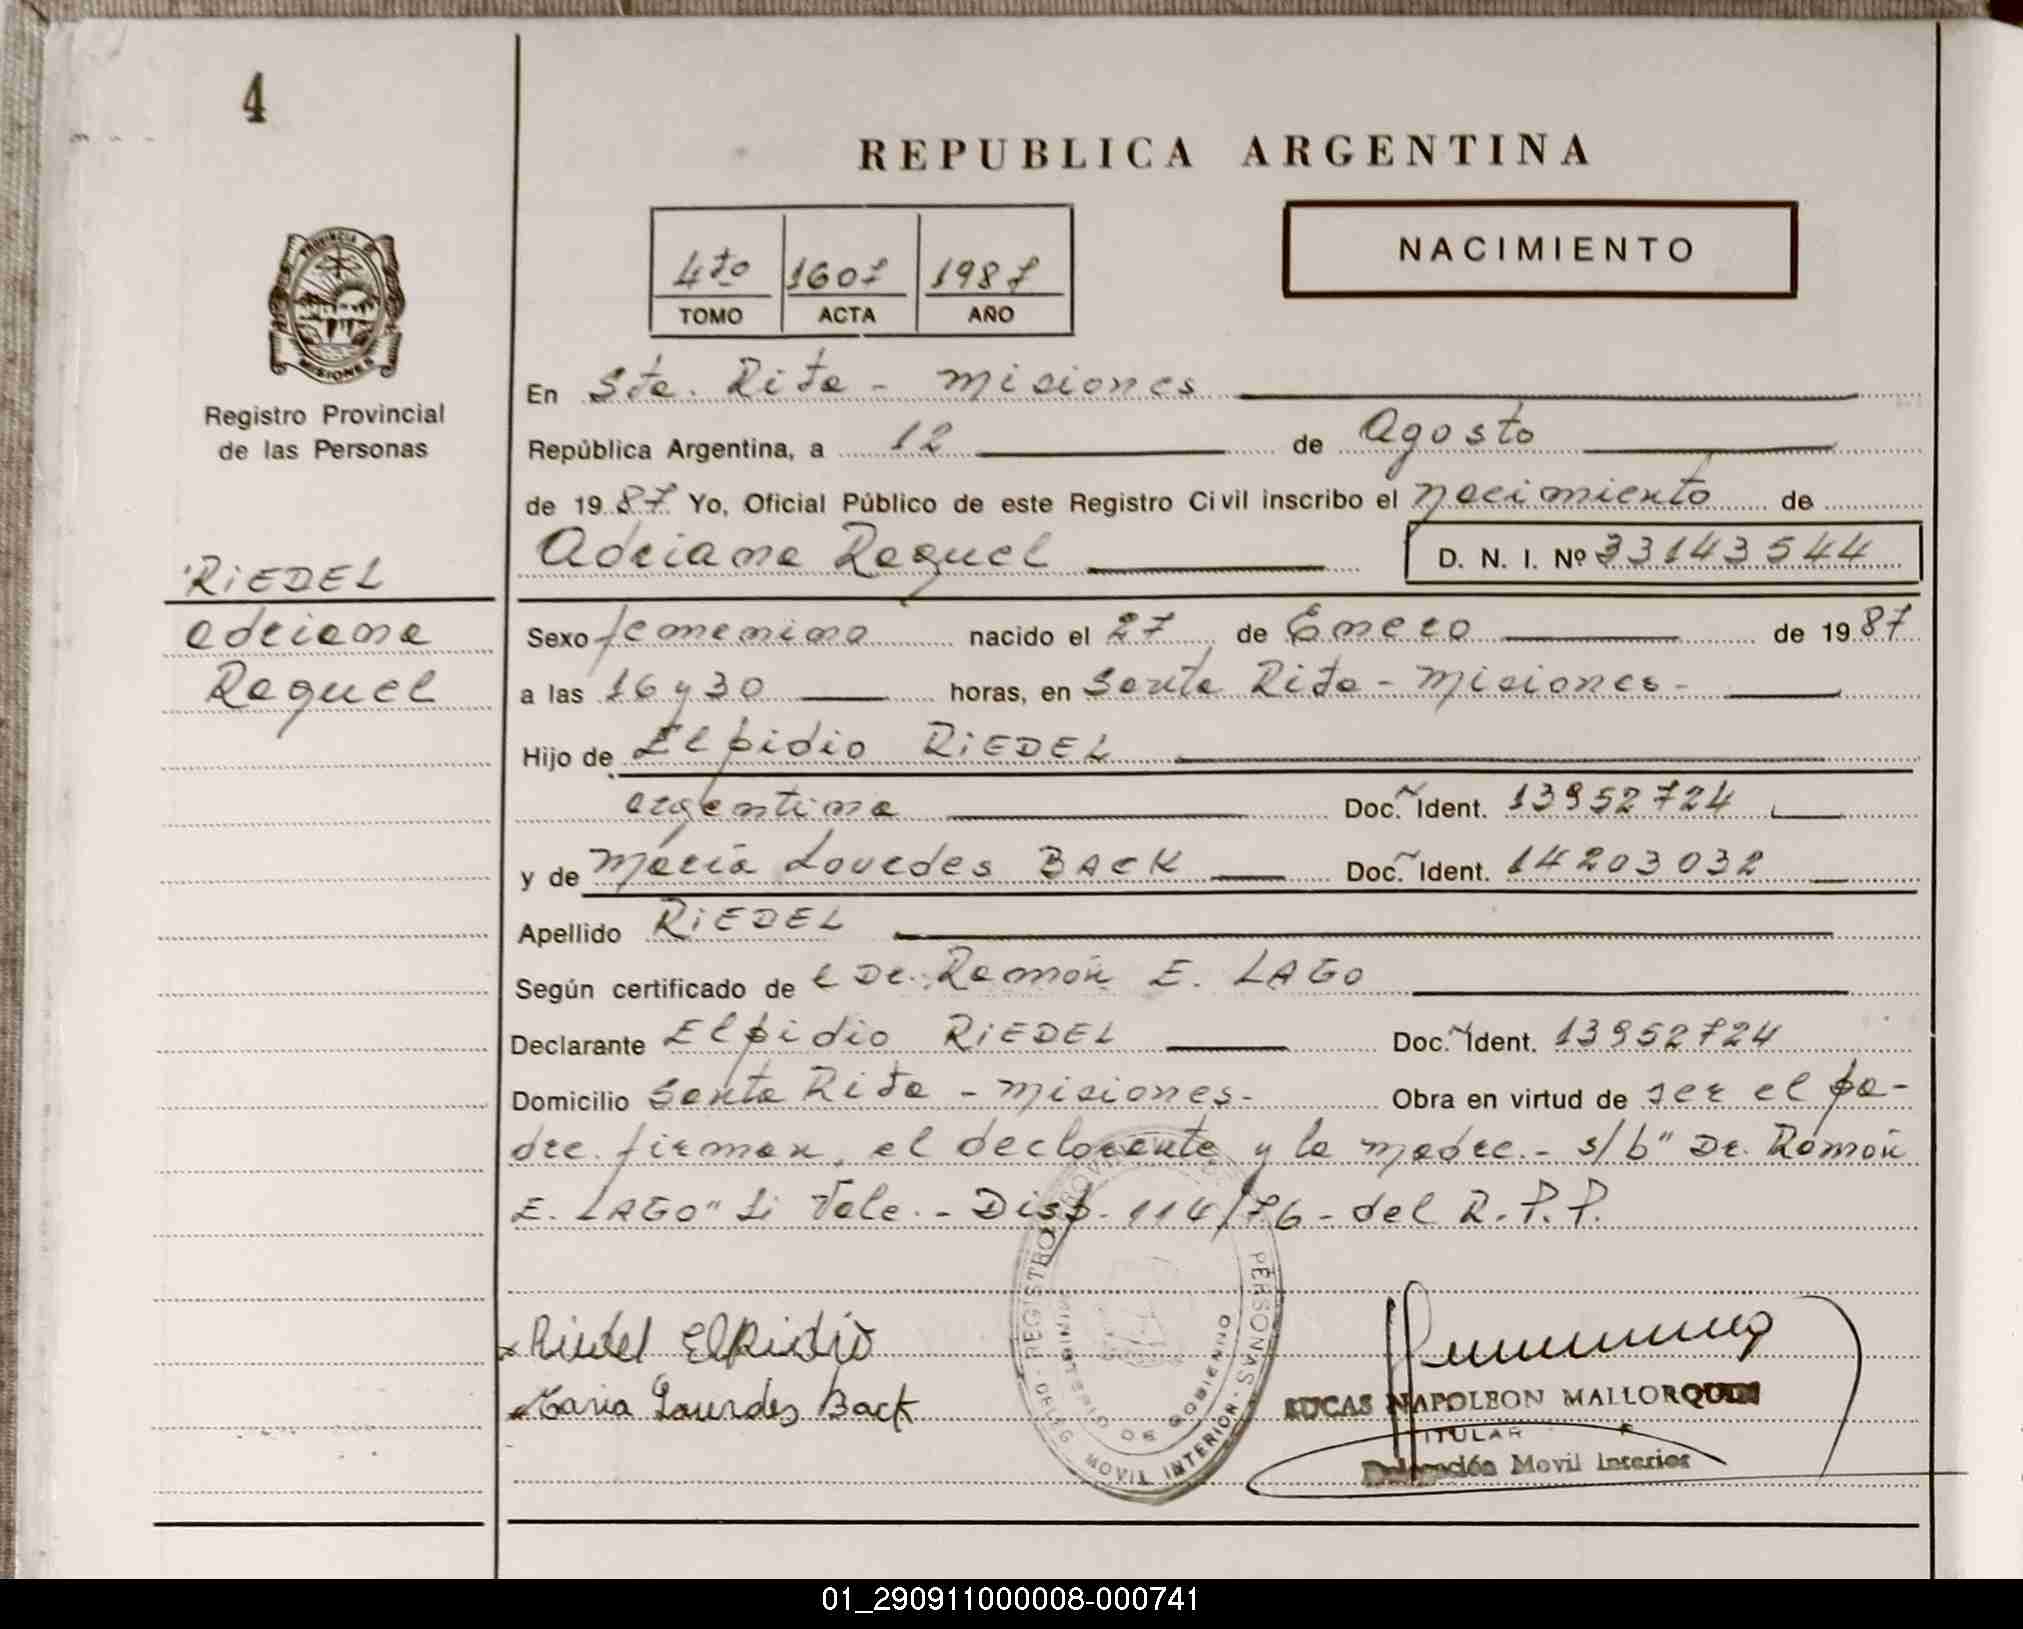 4
REPUBLICA ARGENTINA
NACIMIENTO
4to 1607 1987
TOMO ACTA AÑO
PROVINCIA DE MISIONES
Registro Provincial
de las Personas
En Sta. Rita - Misiones
República Argentina, a 12 de Agosto
de 1987 Yo, Oficial Público de este Registro Civil inscribo el nacimiento de
Adriana Raquel D. N. I. Nº 33143544
RiEDEL
Adriana
Raquel
Sexo femenino nacido el 27 de Enero de 1987
a las 16 y 30 horas, en Santa Rita - Misiones -
Hijo de Elpidio RiEDEL
argentina Doc. Ident. 13952724
y de María Lourdes BACK Doc. Ident. 14203032
Apellido RiEDEL
Según certificado de Dr. Ramón E. LAGO
Declarante Elpidio RiEDEL Doc. Ident. 13952724
Domicilio Santa Rita - Misiones - Obra en virtud de ser el pa-
dre. firman, el declarante y la madre. - s/b" Dr. Ramón
E. LAGO" Si Vale. - Disp. 114/76 - del R.P.P.
Riedel Elpidio
Maria Lourdes Back
REGISTRO PROVINCIAL PERSONAS - DELEG. MOVIL INTERIOR -
MINISTERIO DE GOBIERNO
LUCAS NAPOLEON MALLORQUIN
TITULAR
Delegación Movil Interior
01_290911000008-000741